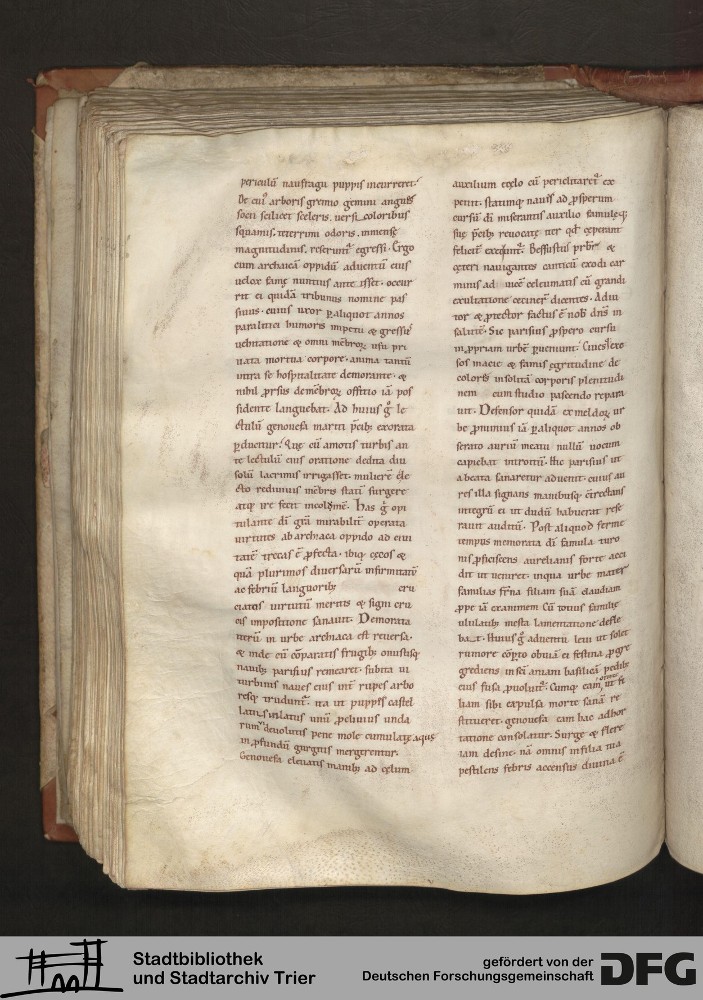 periculũ naufragii puppis incurreret.
De cuiꝰ arboris gremio gemini angues
socii scilicet sceleris. versi coloribus
squamis. teterrimi odoris. inmensę
magnitudinis. reserunt᷑ egressi. Ergo
cum archiacũ oppidũ adventũ eius
uelox famę nuntius ante isset. occur
rit ei quidã tribunus nomine pas
siuus. cuius uxor ꝑ aliquot annos
paralitici humoris impetu & gressuũ
& omni mẽbroꝝ usu pri
uata mortua corpore. anima tantũ
intra se hospitalitate demorante. &
nihil ꝓrsus de mẽbroꝝ offitio iã pos
sidente languebat. Ad huius g̊ le
ctulũ genouefa mariti p̃cibꝫ exorata
ꝑducitur. Que cũ amotis turbis an
te lectulũ eius oratione dedita diu
solũ lacrimis irrigasset. mulierẽ
cto rediuiuis mẽbris statĩ surgere
atqꝫ ire fecit incolomẽ. Has g̊ opi
tulante dĩ grã mirabiliũ operata
uirtutes ab archiaca oppido ad ciui
tatẽ trecas ẽ ꝓfecta. ibiqꝫ cęcos &
quã plurimos diuersarũ infirmitatũ
ac febriũ languoribꝫ cru
ciatos uirtutũ meritis & signi cru
cis impositione sanauit. Demorata
iterũ in urbe archiaca est reuersa.
& inde cũ cõparatis frugibꝫ onustisqꝫ
nauibꝫ parisius remearet. subita ui
turbinis naues eius int̃ rupes arbo
resqꝫ trudunt᷑. ita ut puppes castel
latis inlatus unũ peluiuis unda
rumqꝫ deuolutis pene mole cumulatę aquę
in ꝓfundũ gurgitis mergerentur.
Genouefa eleuatis manibꝫ ad cęlum
auxilium et cęlo cũ periclitaret᷑ ex
petiit. statimqꝫ nauis ad ꝓsperum
cursũ dĩ miserantis auxilio famulęqꝫ
suę p̃cibꝫ reuocatę iter qđ cęperant
felicit̃ exequunt᷑. Bessustus p̃rbr̃ &
cęteri nauigantes canticũ exodi car
minis ad uicẽ celeumatis cũ grandi
exultatione cecinerũ dicentes. Adiu
tor & ꝓtector factus ẽ nob̃ dñs in
salutẽ. Sic parisius ꝓspero cursu
in ꝓpriam urbẽ ꝑueniunt. Ciues exe
sos macie & famis egritudine de
coloris insolitã corporis plenitudi
nem cum studio pascendo repara
uit. Defensor quidã ex meldoꝝ ur
be ꝓmimus iã ꝑ aliquot annos ob
serato auriũ meatu nullũ uocum
capiebat introitũ. Hic parisius ut
a beata sanaretur aduenit. cuius au
res illa signans manibusqꝫ cirectans
integrũ ei ut dudũ habuerat rese
rauit auditũ. Post aliquod ferme
tempus memorata dĩ famula turo
nis ꝓficiscens aurelianis forte acci
dit ut ueniret. inqua urbe mater
familias frña filiam suã claudiam
ꝓpe iã exanimem cũ totius familię
ululatibꝫ mesta lamentatione defle
bat. Huius g̊ aduentũ leui ut solet
rumore cõꝑto obuiã ei festina ꝓgre
grediens in scĩ aniani basilicã pedibꝫ
eius fusa ꝓuoluit᷑. Cumqꝫ eam ut fi
liam sibi expulsa morte sanã re
stitueret. genouefa eam hac adhor
tatione consolatur. Surge & flere
iam desine. nã omnis in filia tua
pestilens febris accensus diuina ẽ
Stadtbibliothek
und Stadtarchiv Trier
gefördert von der
Deutschen Forschungsgemeinschaft
DFG